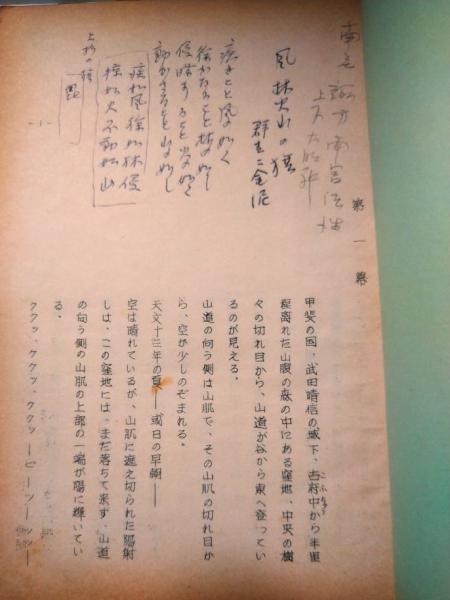 南無諏方南宮法性
上下大明神
第一巻
風林火山の旗
群青に金泥
疾きこと風の如く
徐かなること林の如し
侵掠すること火の如く
動かざること山の如し
疾如風徐如林侵
掠如火不動如山
上杉の旗
毘
-1-
甲斐の国、武田晴信の城下、古府中から半里
程離れた山腹の森の中にある窪地、中央の樹
々の切れ目から、山道が谷から東へ登ってい
るのが見える。
山道の向う側は山肌で、その山肌の切れ目か
ら、空が少しのぞまれる。
天文十三年の夏――或日の早朝――
空は晴れているが、山肌に遮え切られた陽射
しは、この窪地には、まだ落ちて来ず、山道
の向う側の山肌の上部の一端が陽に輝いてい
る。
ククッ、ケケッ、ククッ――ピーツー――ツッ――
こふちゅう